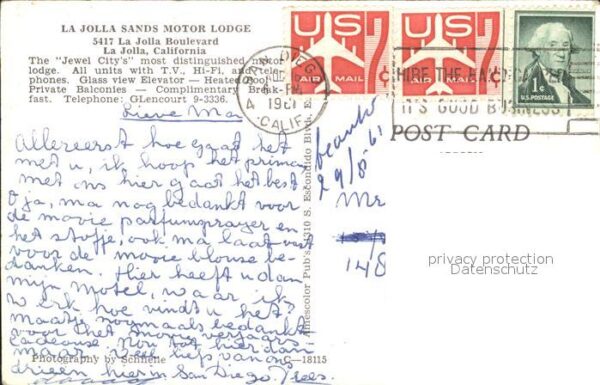 LA JOLLA SANDS MOTOR LODGE
5417 La Jolla Boulevard
La Jolla, California
The "Jewel City's" most distinguished motor
lodge. All units with T.V., Hi-Fi, and tele-
phones. Glass view Elevator — Heated Pool
Private Balconies — Complimentary Break-
fast. Telephone: GLencourt 9-3336.
Lieve Ma
Allereerst hoe gaat het
met u, ik hoop het prima
met ons hier gaat het best
O ja, ma nog bedankt voor
de mooie parfumprayer en
het stofje, ook ma laat uit
voor de mooie blouse be-
danken. Hier heeft u dan
mijn Motel, waar ik
werk hoe vindt u het?
maatje nogmaals bedankt
voor het mooie verjaars
cadeause Nou tot hier dan
maar veel liefs van ons
drieen hier in San Diego. Trees.
Photography by Schnelle
C—18115
SAN DIEGO
4
1961
CALIF.
US
AIR MAIL
7¢
US
AIR MAIL
7¢
1¢
U.S. POSTAGE
HIRE THE HANDICAPPED
IT'S GOOD BUSINESS
POST CARD
29/8-61
Mr
148
Pub's, 1310 S. Escondido Blvd.
privacy protection
Datenschutz